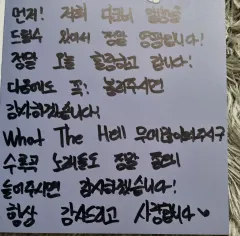 먼저! 저희
드릴수 있어서 정말 영광입니다!
정말 오늘 즐겁고 합니다!
다음에도 꼭! 불러주시면
감사하겠습니다!
What The Hell 무대 많이봐주시구
수록곡 노래들도 정말 많이
들어주시면 감사하겠습니다!
항상 감사드리고 사랑합니다